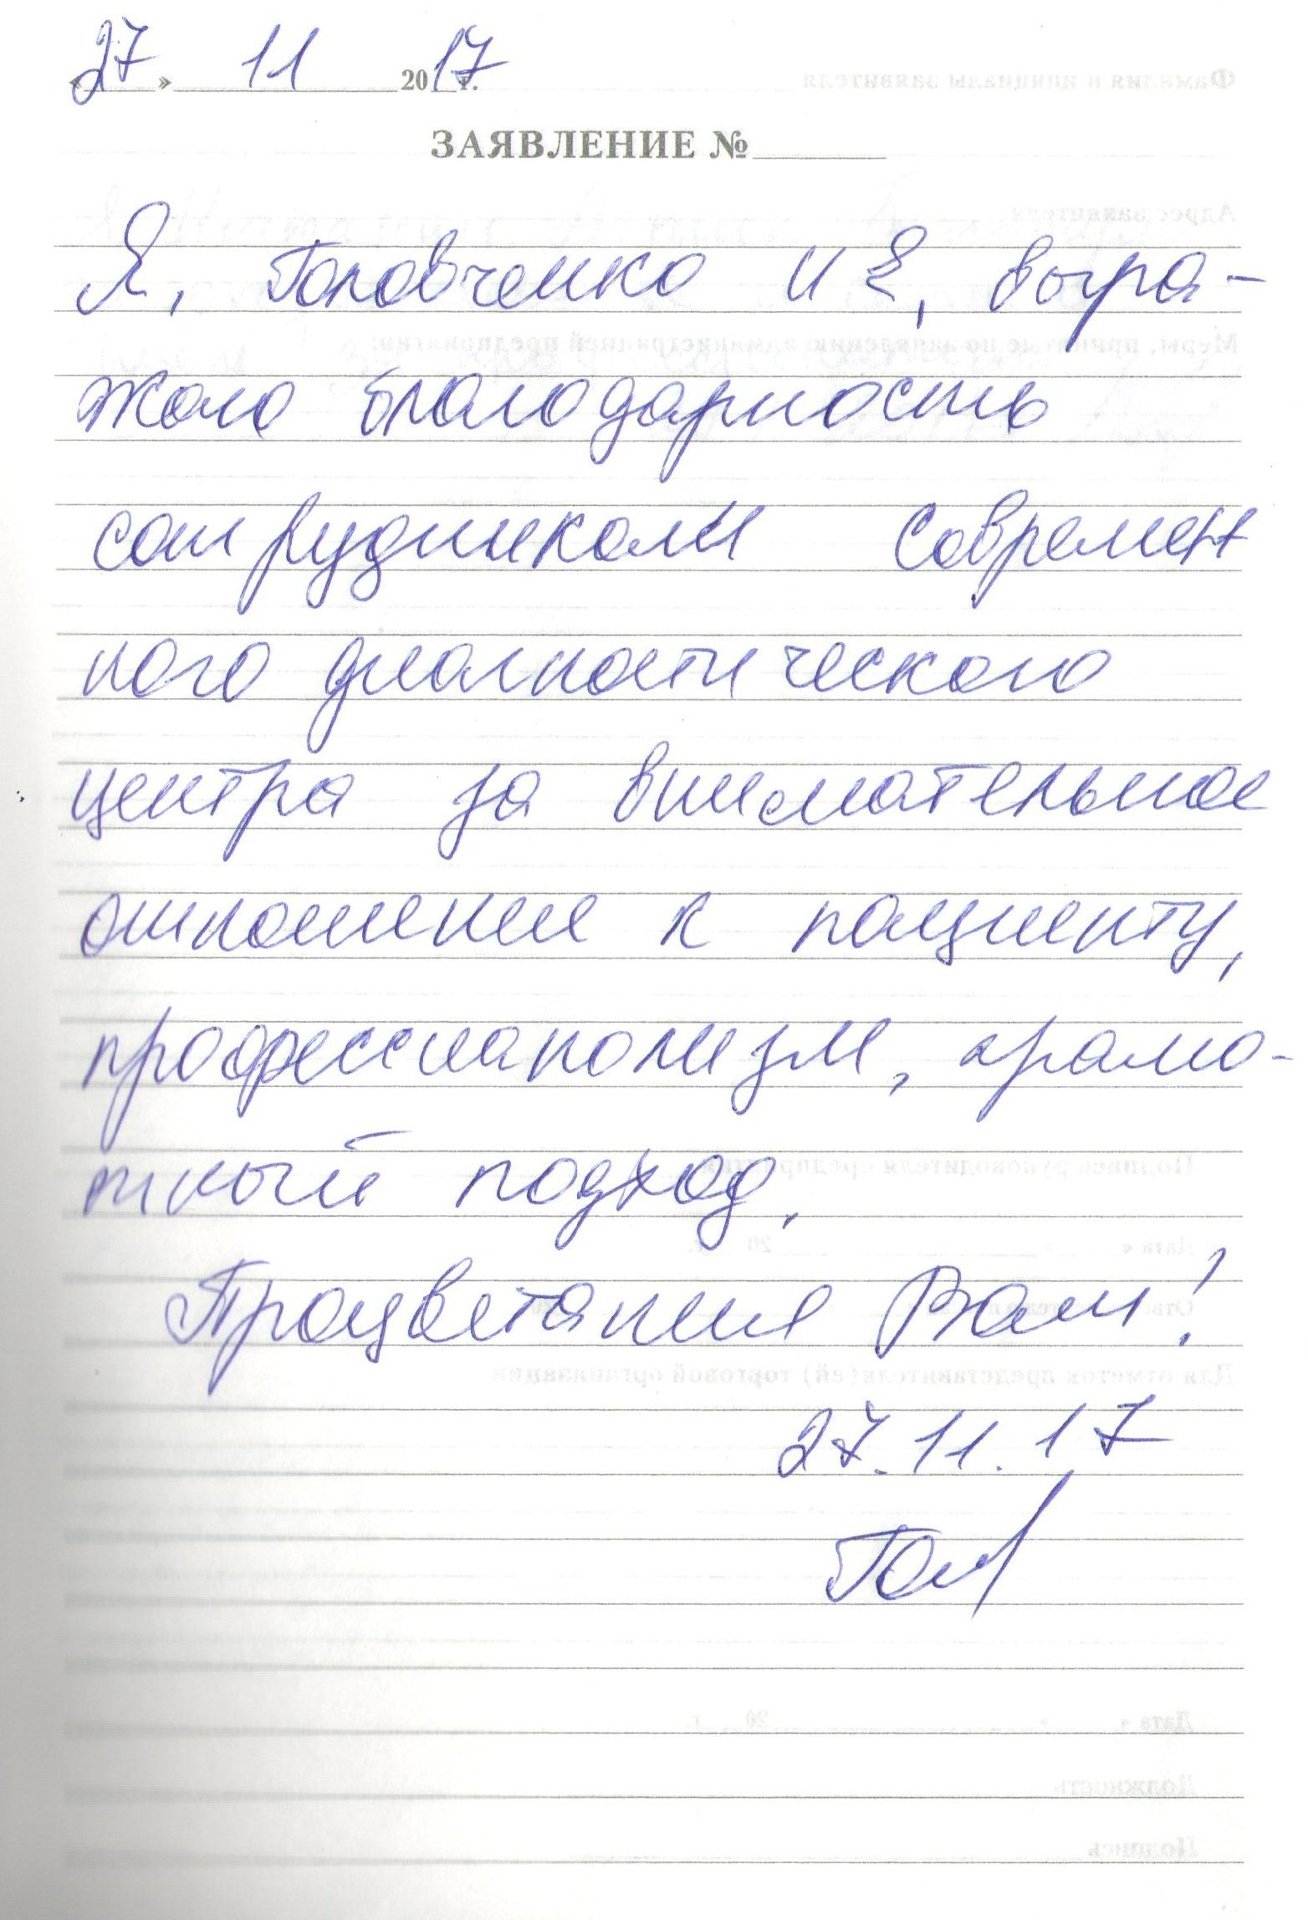 «27» 11 2017 г.
ЗАЯВЛЕНИЕ №
Я, Головченко И Е, выра-
жаю благодарность
сотрудникам современ
ного диагностического
центра за внимательное
отношение к пациенту,
профессионализм, грамо-
тный подход.
Процветания Вам!
27.11.17
Гол